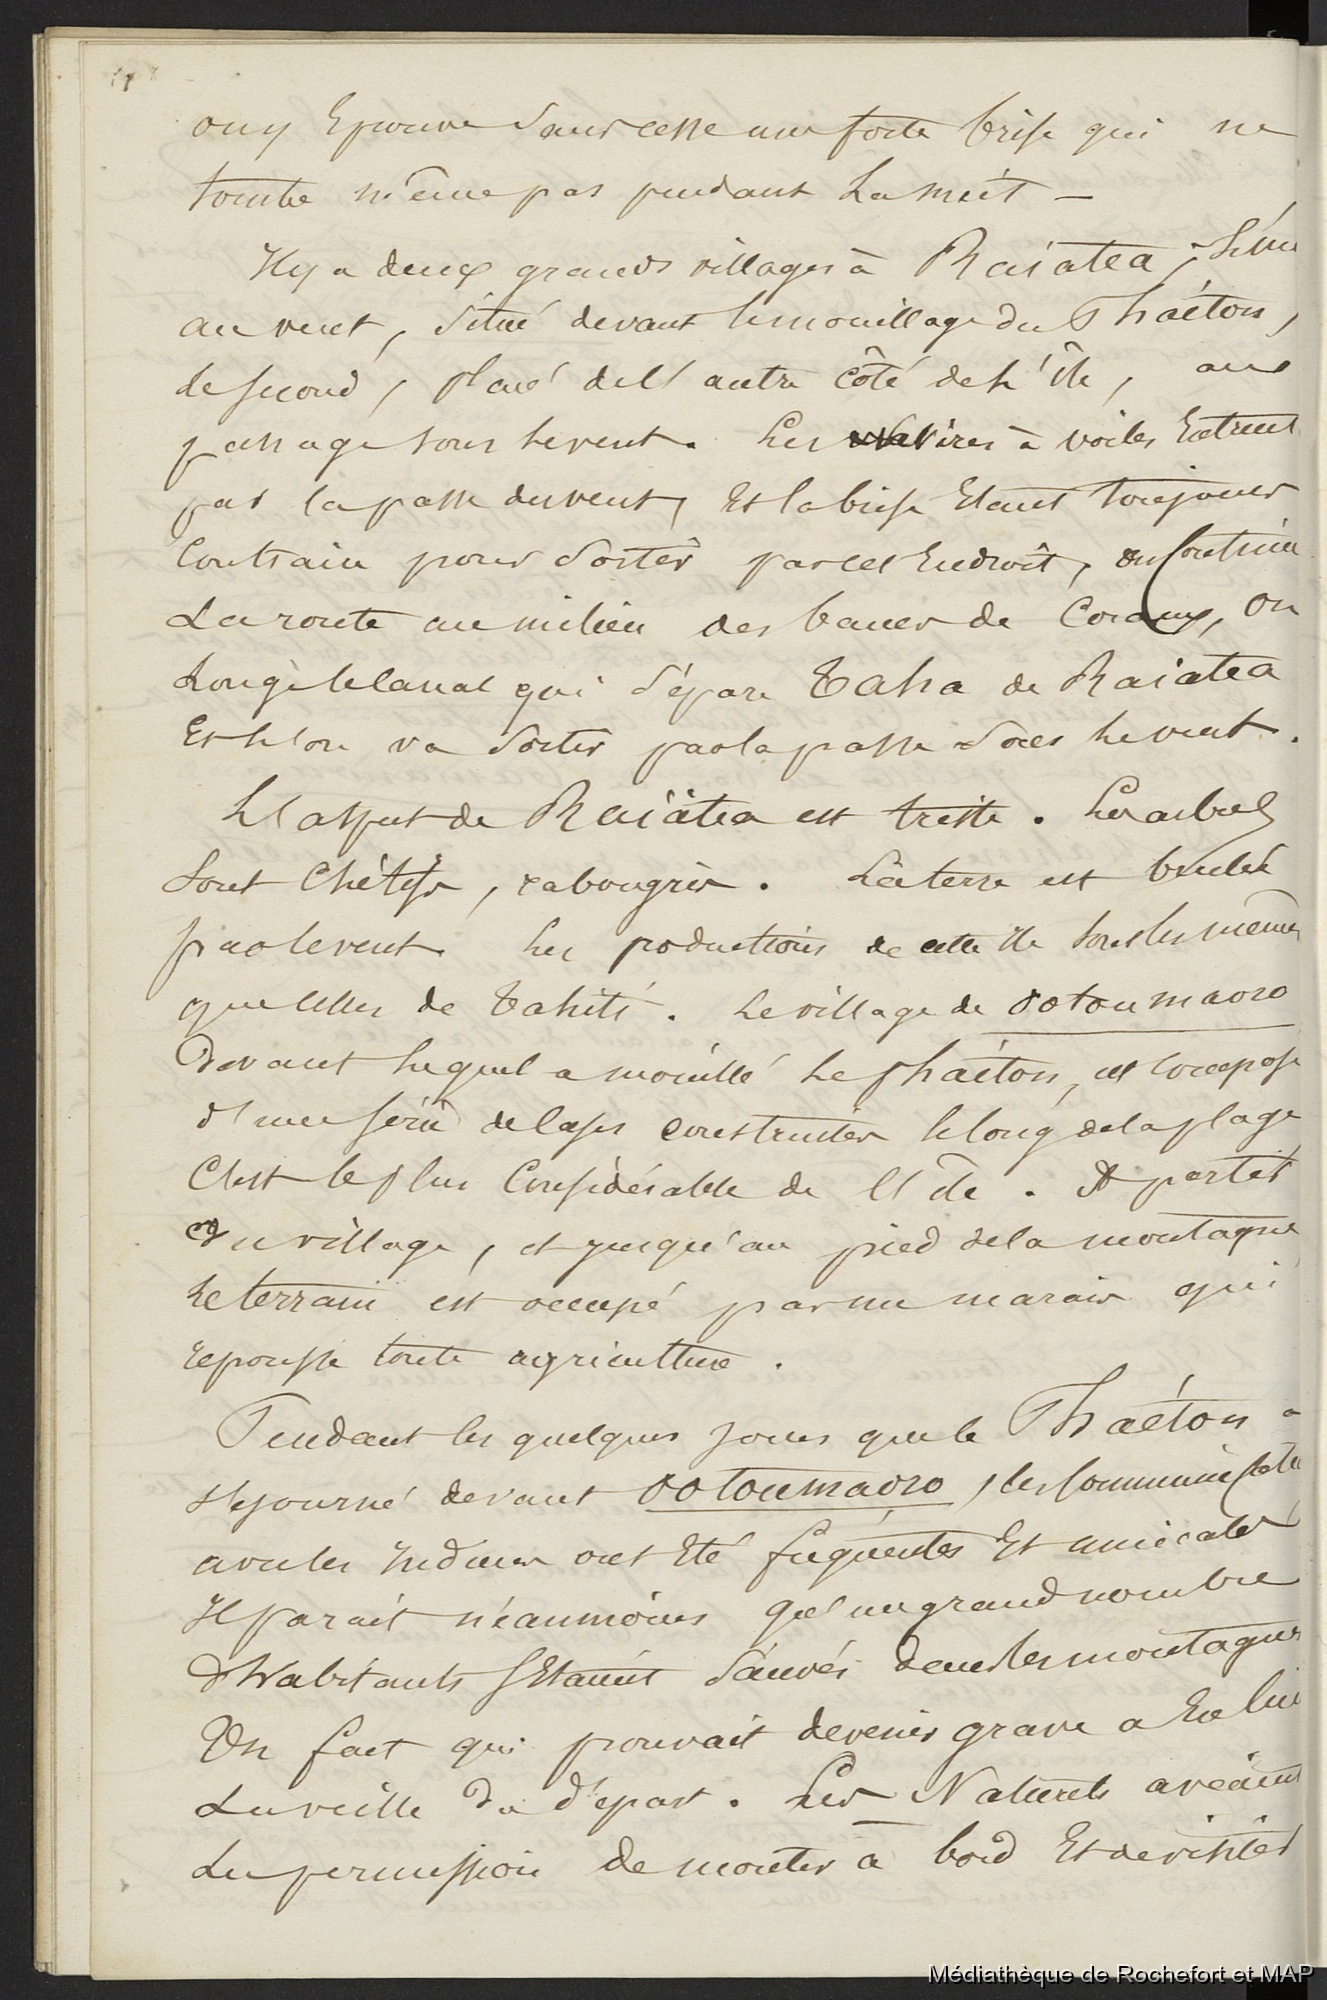 on y Eprouve Sans cesse une forte brise qui ne
tombe même pas pendant La nuit —
Il y a deux grands villages à Raïatea, L'un
au vent, Situé devant le mouillage du Phaéton,
le second, placé de l'autre côté de L'île, au
passage sous le vent. Les Navires à voiles Entrent
par la passe du vent, Et la brise Etant toujours
Contraire pour Sortir par cet Endroit, on Continue
La route au milieu des bancs de Coraux, on
Longe le canal qui Sépare Taha de Raiatea
Et l'on va Sortir par la passe Sous le vent.
L'aspect de Raïatea est triste. Les arbres
Sont Chétifs, rabougris. La terre est brulée
par le vent. Les productions de cette île sont les mêmes
que celles de Tahiti. Le village de Ootoumaoro
Devant lequel a mouillé Le Phaéton, est composé
d'une Série de cases construites le long de la plage
C'est le plus Considérable de l'île. A partir
du village, et jusqu'au pied de la montagne
Le terrain est occupé par un marais qui
repousse toute agriculture.
Pendant les quelques jours que le Phaéton a
Séjourné devant Ootoumaoro, les Communications
avec les Indiens ont Eté fréquentes Et amicales
Il parait néanmoins qu'un grand nombre
d'habitants S'Etaient Sauvés dans les montagnes
Un fait qui pouvait devenir grave a Eu lieu
La veille du départ. Les Naturels avaient
La permission de monter à bord Et de visiter
Médiathèque de Rochefort et MAP